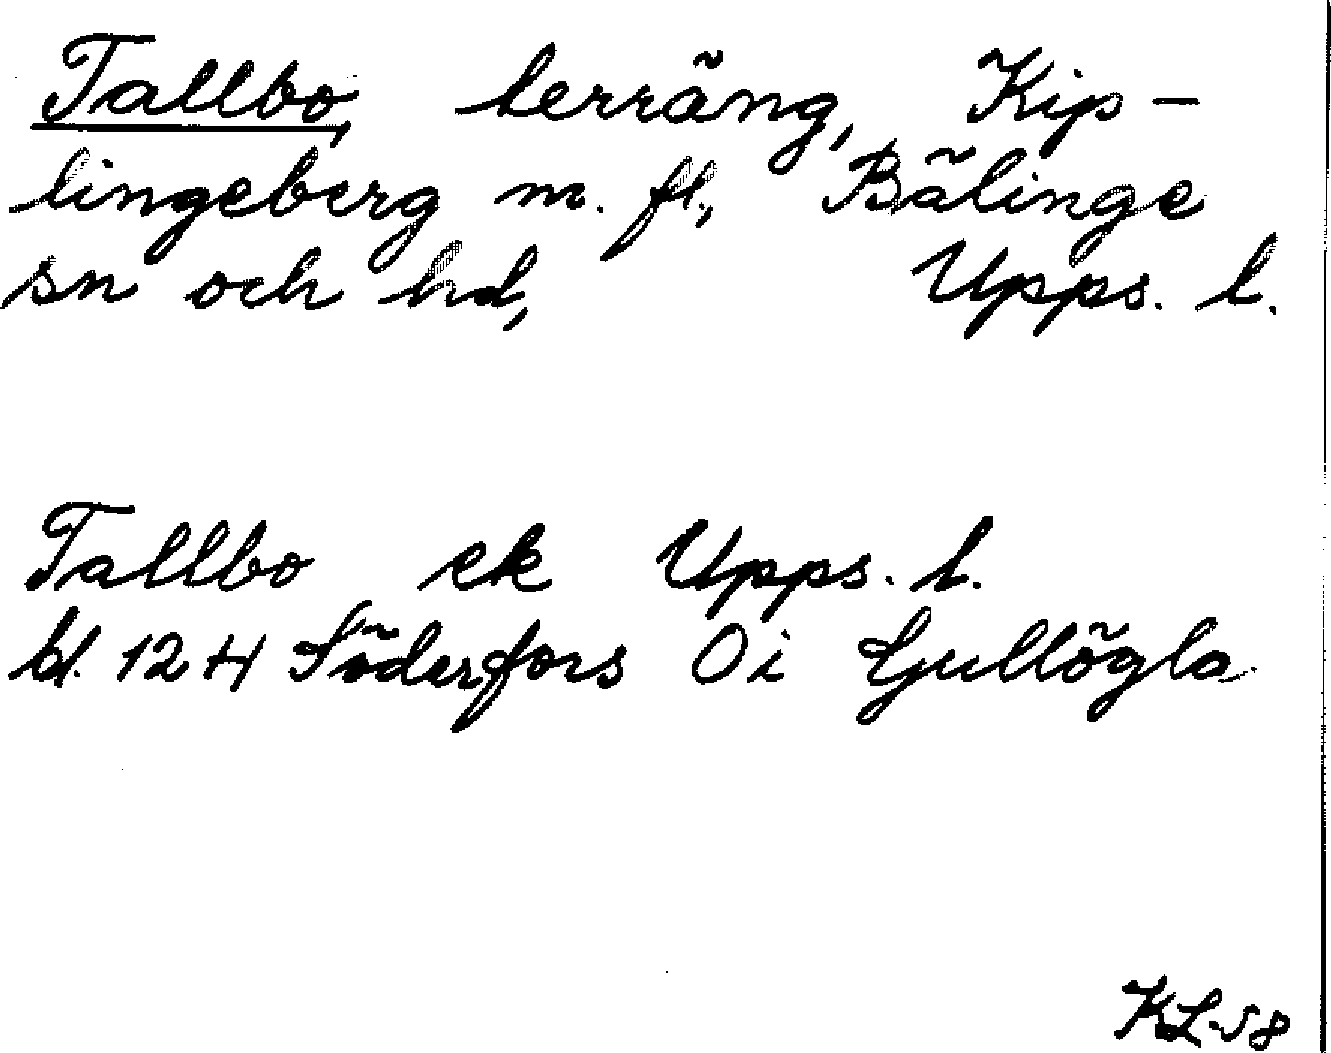 Tallbo, terräng, Kip-
lingeberg m. fl., Bälinge
sn och hd, Upps. l.
Tallbo ek Upps. l.
bl. 12 H Söderfors 0 i Gullögla
KL-58